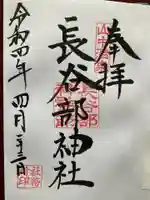 奉拝
長谷部神社
令和四年四月二十三日